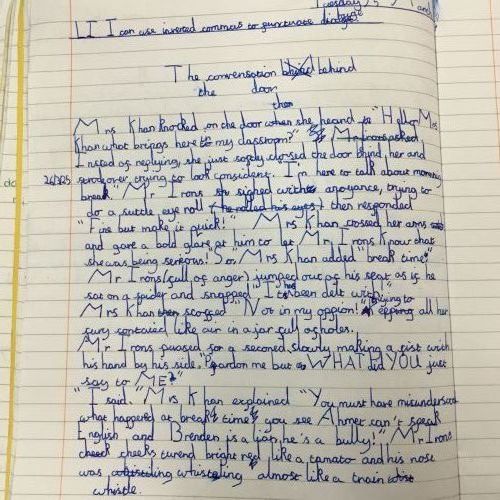 Tuesday
LI I can use inverted commas to punctuate dialogue
The convensation behind behind
the door
then
Mrs Khan knocked on the door when she heand "Hello Mrs
Khan what brings here to my classroom?" Mr Irons asked
Insted of replying, she just softly closed the door bhind her and
strode over, trying to look considert. I'm here to talk about morning
break" Mr Irons signed with anoyance, trying to
do a suttle eye roll (he rolled his eyes) then responded
"Fine but make it quick!" Mrs Khan crossed her arms
and gave a bold glare at him to let Mr Irons know that
she was being serious! So Mrs Khan added "break time"
Mr Irons (full of anger) jumped out of his seat as if he
sat on a spider and snapped "I been delt with"
had
Mrs Khan then scoffed "Not in my oppion! trying to
keeping all her
fury contained like air in a jar full of holes.
Mr Irons puased for a second, slowly making a fist with
his hand by his side. "pardon me but WHAT did YOU just
say to ME?"
"I said." Mrs Khan explained "You must have misunderstood
what happened at break time, you see Ahmer can't speak
English and Brenden is a liar, he's a bully!" Mr Irons
cheek cheeks turend bright red like a tomato and his nose
was whistling almost like a train
whistle.